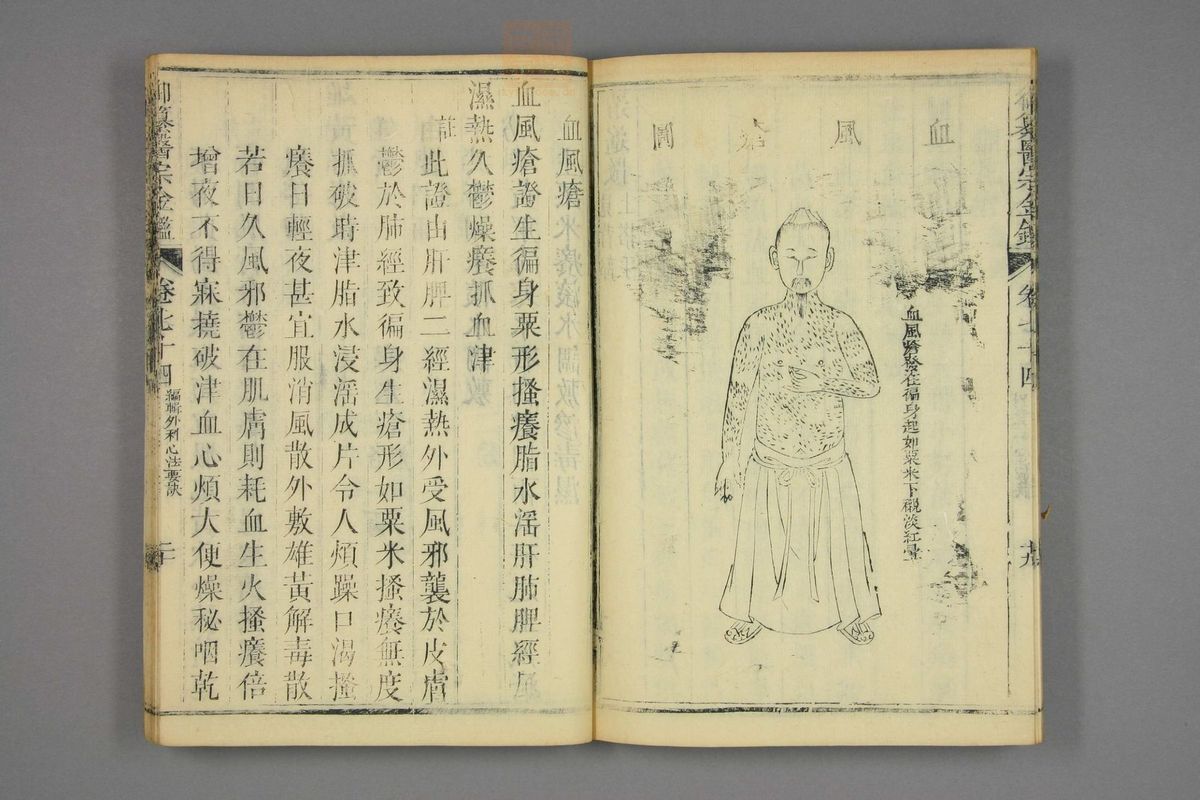 御纂醫宗金鑑
卷七十四
十九
血風瘡圖
血風瘡發在徧身起如粟米下襯淡紅暈
血風瘡
血風瘡證生徧身粟形搔癢脂水淫肝肺脾經
濕熱久鬱燥癢抓血津
註
此證由肝脾二經濕熱外受風邪襲於皮膚
鬱於肺經致徧身生瘡形如粟米搔癢無度
抓破時津脂水浸淫成片令人煩躁口渴搔
癢日輕夜甚宜服消風散外敷雄黃解毒散
若日久風邪鬱在肌膚則耗血生火搔癢倍
增夜不得寐撓破津血心煩大便燥秘咽乾
御纂醫宗金鑑
卷七十四
編輯外科心法要訣
二十